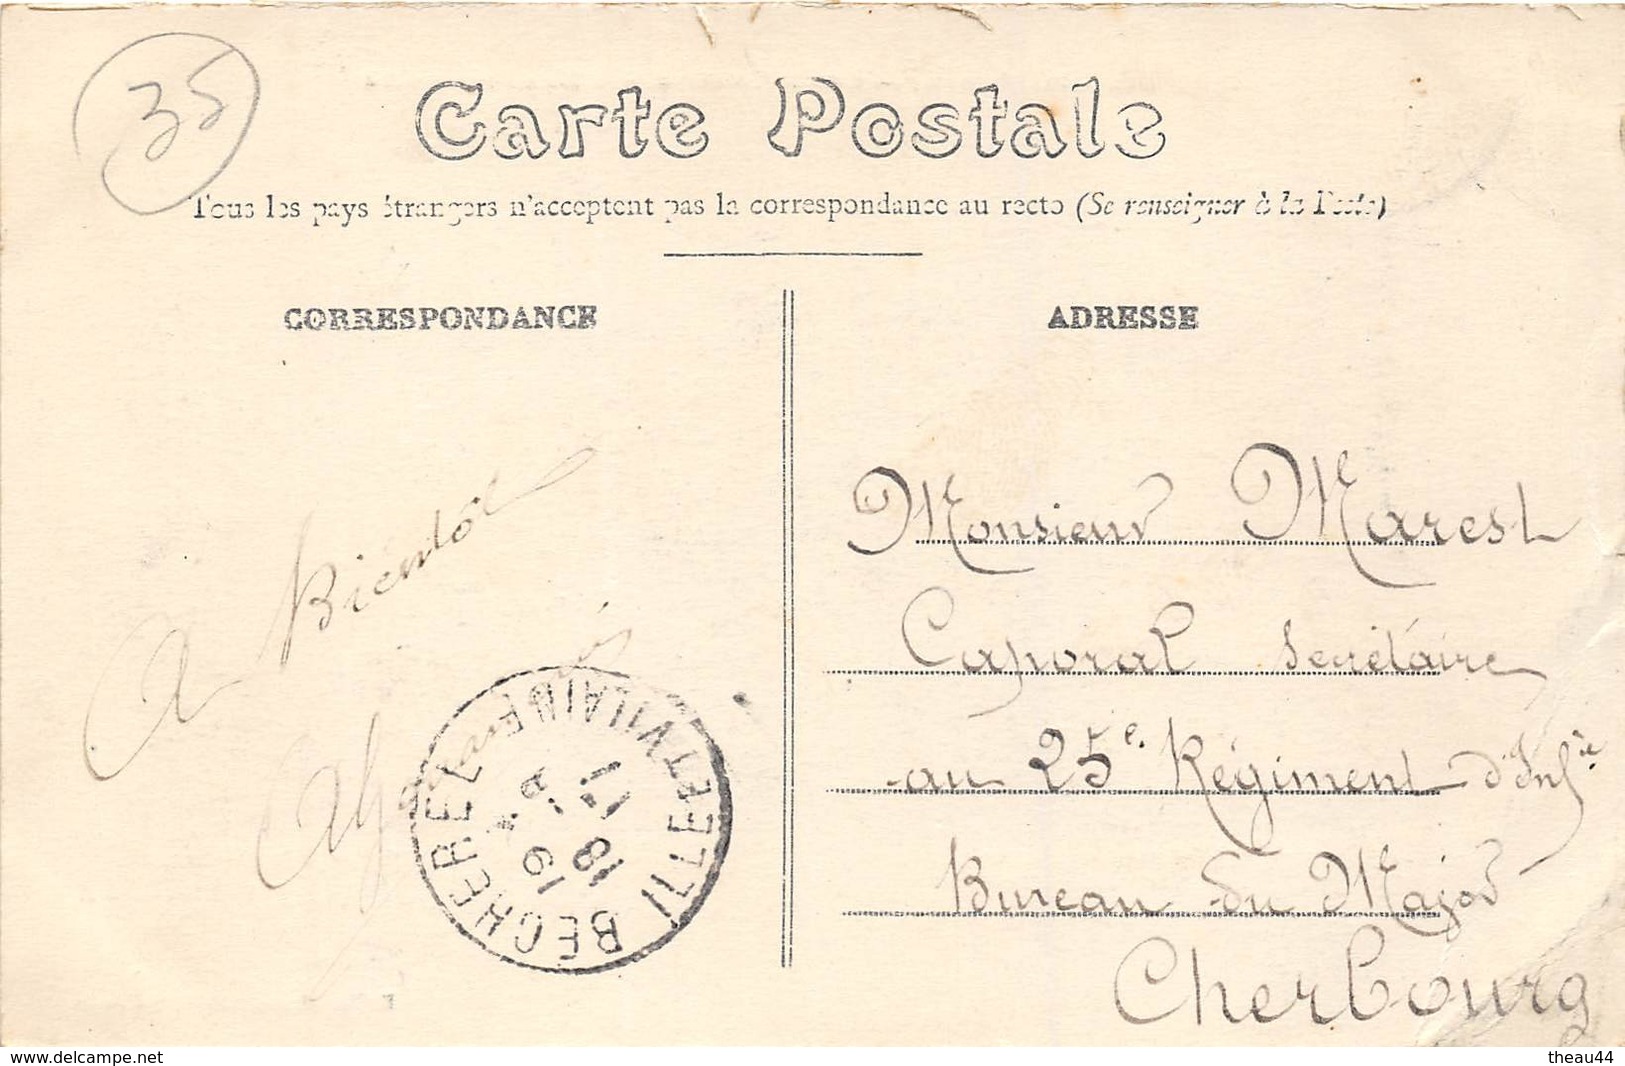 35
Carte Postale
Tous les pays étrangers n'acceptent pas la correspondance au recto (Se renseigner à la Poste)
CORRESPONDANCE
A Bientôt
BECHEREL
ILLE ET VILAINE
ADRESSE
Monsieur Marest
Caporal Secrétaire
au 25e. Régiment d'Infie
Bureau du Major
Cherbourg
www.delcampe.net
theau44